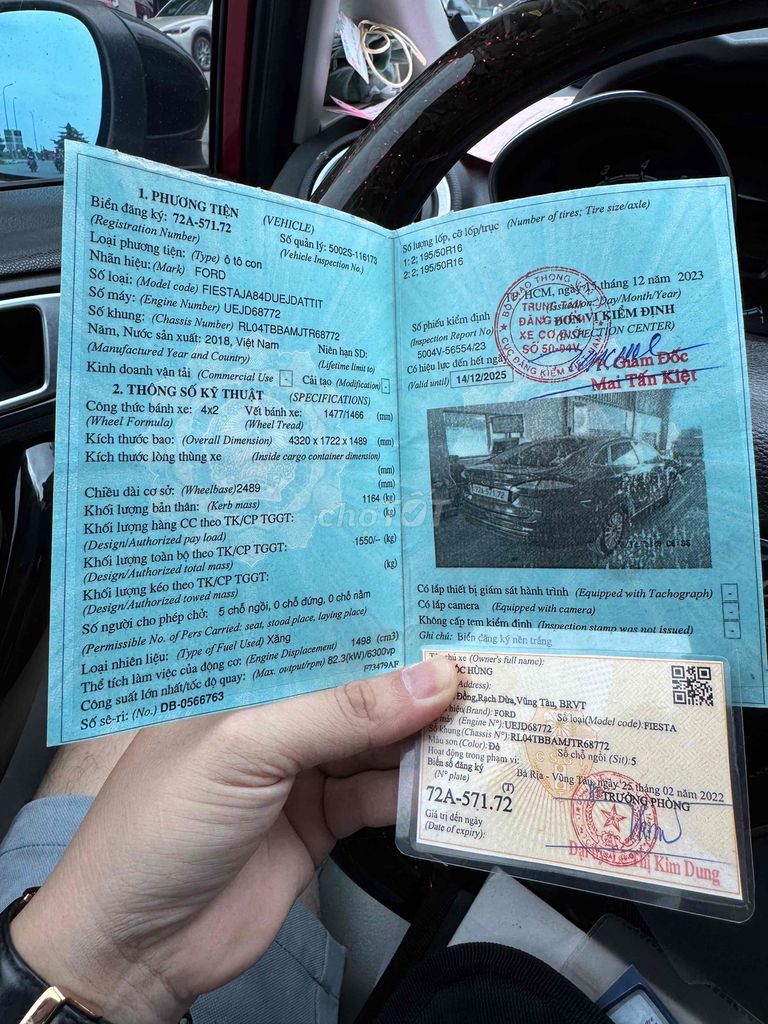 1. PHƯƠNG TIỆN (VEHICLE)
Biển đăng ký: 72A-571.72
(Registration Number)
Số quản lý: 5002S-116173
(Vehicle Inspection No.)
Loại phương tiện: (Type) ô tô con
Nhãn hiệu: (Mark) FORD
Số loại: (Model code) FIESTAJA84DUEJDATTIT
Số máy: (Engine Number) UEJD68772
Số khung: (Chassis Number) RL04TBBAMJTR68772
Năm, Nước sản xuất: 2018, Việt Nam
(Manufactured Year and Country)
Niên hạn SD:
(Lifetime limit to)
Kinh doanh vận tải (Commercial Use) - Cải tạo (Modification) -
2. THÔNG SỐ KỸ THUẬT (SPECIFICATIONS)
Công thức bánh xe: 4x2 Vết bánh xe: 1477/1466 (mm)
(Wheel Formula) (Wheel Tread)
Kích thước bao: (Overall Dimension) 4320 x 1722 x 1489 (mm)
Kích thước lòng thùng xe (Inside cargo container dimension)
(mm)
Chiều dài cơ sở: (Wheelbase) 2489 (mm)
Khối lượng bản thân: (Kerb mass) 1164 (kg)
Khối lượng hàng CC theo TK/CP TGGT:
(Design/Authorized pay load) (kg)
Khối lượng toàn bộ theo TK/CP TGGT: 1550/-- (kg)
(Design/Authorized total mass)
Khối lượng kéo theo TK/CP TGGT: (kg)
(Design/Authorized towed mass)
Số người cho phép chở: 5 chỗ ngồi, 0 chỗ đứng, 0 chỗ nằm
(Permissible No. of Pers Carried: seat, stood place, laying place)
Loại nhiên liệu: (Type of Fuel Used) Xăng
Thể tích làm việc của động cơ: (Engine Displacement) 1498 (cm3)
Công suất lớn nhất/tốc độ quay: (Max. output/rpm) 82.3(kW)/6300vp
Số sê-ri: (No.) DB-0566763
F73479AF
Số lượng lốp, cỡ lốp/trục (Number of tires; Tire size/axle)
1: 2; 195/50R16
2: 2; 195/50R16
TP. HCM, ngày 15 tháng 12 năm 2023
(Issued on: Day/Month/Year)
Số phiếu kiểm định ĐƠN VỊ KIỂM ĐỊNH
(Inspection Report No) (INSPECTION CENTER)
5004V-56554/23
Có hiệu lực đến hết ngày
(Valid until) 14/12/2025
BỘ GIAO THÔNG
TRUNG TÂM
ĐĂNG KIỂM
XE CƠ GIỚI
SỐ 50-04V
CỤC ĐĂNG KIỂM VIỆT NAM
Giám Đốc
Mai Tấn Kiệt
72A-571.72
choTỐT
Có lắp thiết bị giám sát hành trình (Equipped with Tachograph) -
Có lắp camera (Equipped with camera) -
Không cấp tem kiểm định (Inspection stamp was not issued) -
Ghi chú: Biển đăng ký nền trắng
chủ xe (Owner's full name):
HÙNG
Address):
Đồng,Rạch Dừa,Vũng Tàu, BRVT
hiệu(Brand): FORD Số loại(Model code):FIESTA
máy (Engine N°):UEJD68772
Số khung(Chassis N°):RL04TBBAMJTR68772
Màu sơn(Color):Đỏ Số chỗ ngồi (Sit):5
Hoạt động trong phạm vi: (T)
Biển số đăng ký
(N° plate)
Bà Rịa - Vũng Tàu, ngày 25 tháng 02 năm 2022
72A-571.72
TRƯỞNG PHÒNG
Giá trị đến ngày
(Date of expiry):
Kim Dung